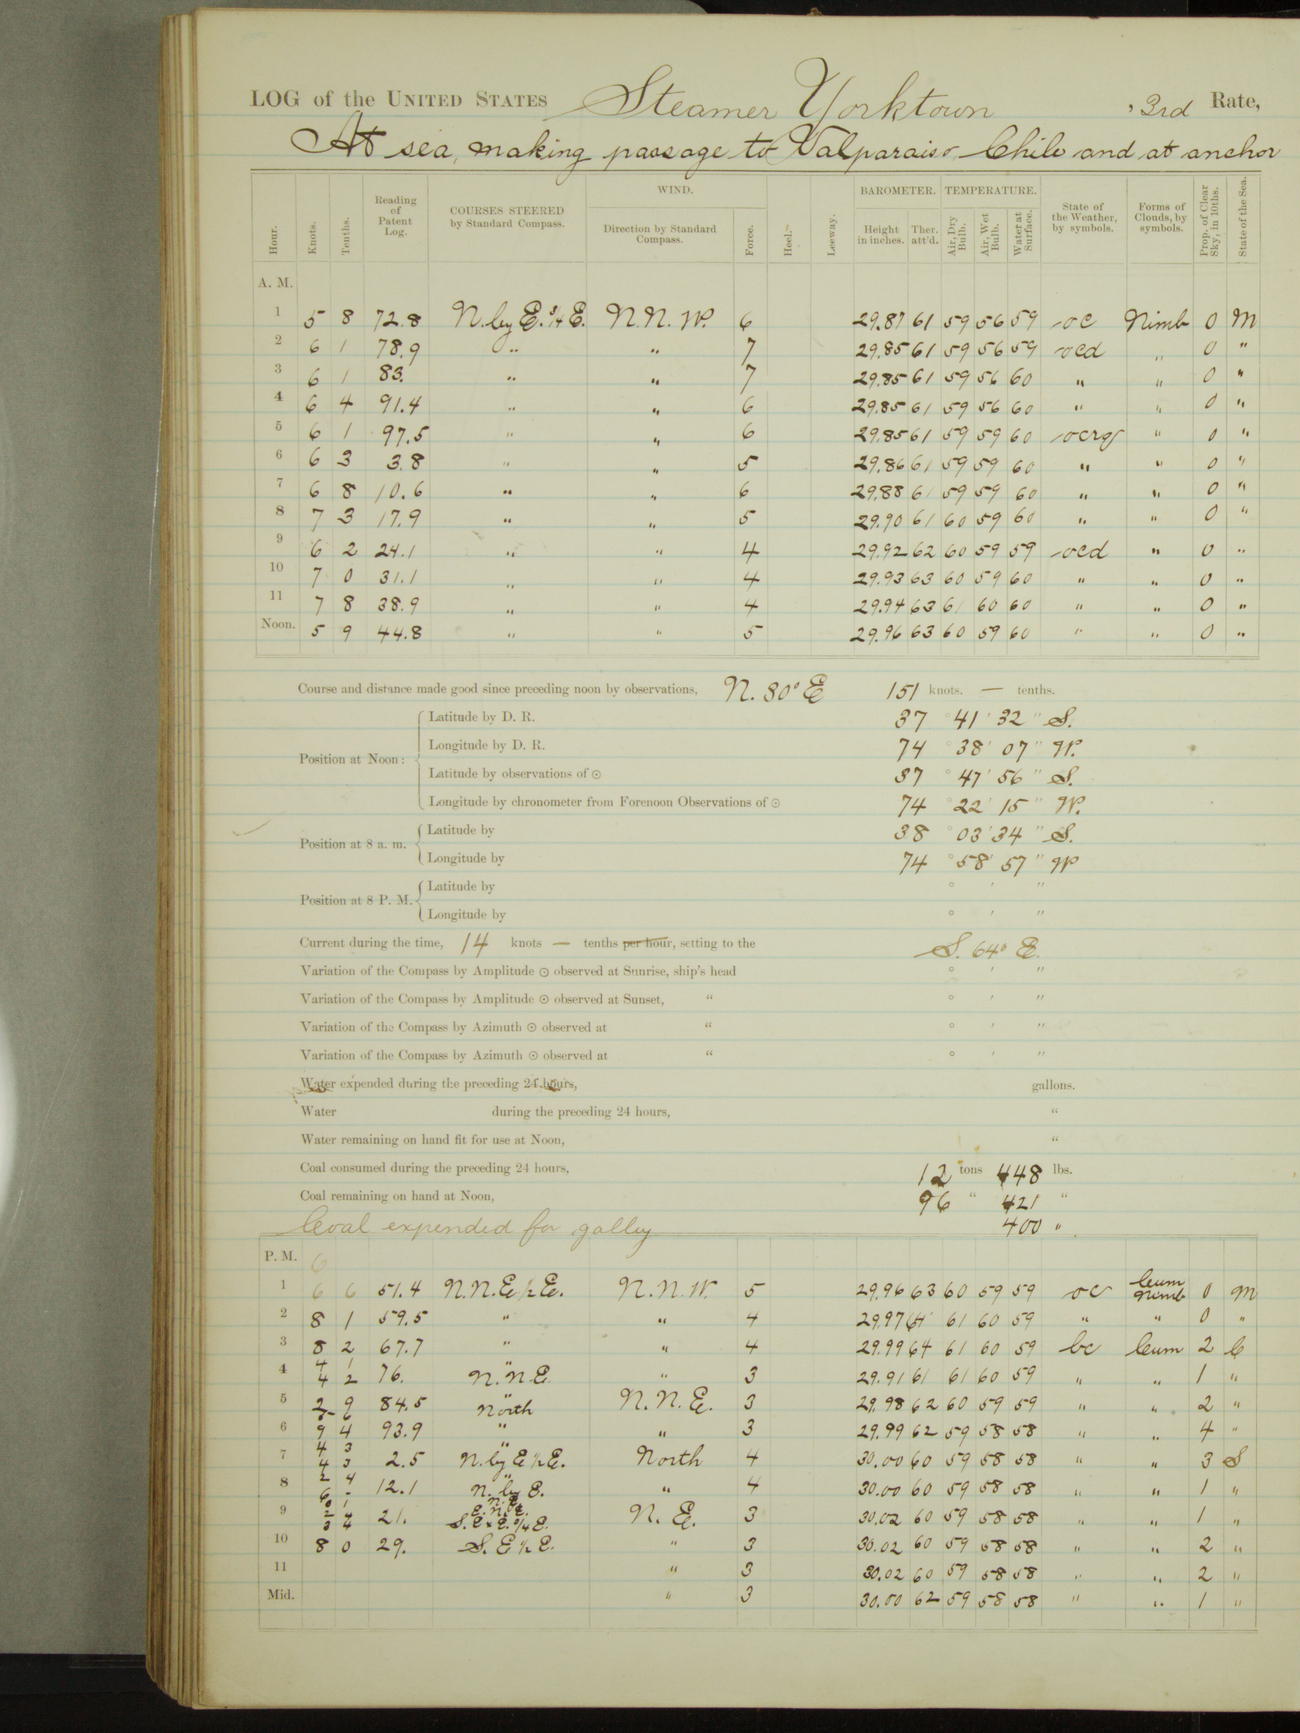 LOG of the UNITED STATES Steamer Yorktown , 3rd Rate,
At sea, making passage to Valparaiso Chile and at anchor
Hour. Knots. Tenths. Reading of Patent Log. COURSES STEERED by Standard Compass. WIND. Direction by Standard Compass. Force. Heel. Leeway. BAROMETER. Height in inches. Ther. att'd. TEMPERATURE. Air, Dry Bulb. Air, Wet Bulb. Water at Surface. State of the Weather, by symbols. Forms of Clouds, by symbols. Prop. of Clear Sky, in 10ths. State of the Sea.
A. M.
1 5 8 72.8 N. by E. 3/4 E. N. N. W. 6 29.87 61 59 56 59 oc Nimb 0 M
2 6 1 78.9 " " 7 29.85 61 59 56 59 ocd " 0 "
3 6 1 83. " " 7 29.85 61 59 56 60 " " 0 "
4 6 4 91.4 " " 6 29.85 61 59 56 60 " " 0 "
5 6 1 97.5 " " 6 29.85 61 59 59 60 ocrq " 0 "
6 6 3 3.8 " " 5 29.86 61 59 59 60 " " 0 "
7 6 8 10.6 " " 6 29.88 61 59 59 60 " " 0 "
8 7 3 17.9 " " 5 29.90 61 60 59 60 " " 0 "
9 6 2 24.1 " " 4 29.92 62 60 59 59 ocd " 0 "
10 7 0 31.1 " " 4 29.93 63 60 59 60 " " 0 "
11 7 8 38.9 " " 4 29.94 63 61 60 60 " " 0 "
Noon. 5 9 44.8 " " 5 29.96 63 60 59 60 " " 0 "
Course and distance made good since preceding noon by observations, N. 80° E 151 knots. — tenths.
Latitude by D. R. 37 ° 41 ' 32 " S.
Longitude by D. R. 74 ° 38 ' 07 " W.
Position at Noon:
Latitude by observations of ☉ 37 ° 47 ' 56 " S.
Longitude by chronometer from Forenoon Observations of ☉ 74 ° 22 ' 15 " W.
Latitude by 38 ° 03 ' 34 " S.
Position at 8 a. m.
Longitude by 74 ° 58 ' 57 " W
Latitude by ° ' "
Position at 8 P. M.
Longitude by ° ' "
Current during the time, 14 knots — tenths per hour, setting to the S. 64° E.
Variation of the Compass by Amplitude ☉ observed at Sunrise, ship's head ° ' "
Variation of the Compass by Amplitude ☉ observed at Sunset, " ° ' "
Variation of the Compass by Azimuth ☉ observed at " ° ' "
Variation of the Compass by Azimuth ☉ observed at " ° ' "
Water expended during the preceding 24 hours, gallons.
Water during the preceding 24 hours, "
Water remaining on hand fit for use at Noon, "
Coal consumed during the preceding 24 hours, 12 tons 448 lbs.
Coal remaining on hand at Noon, 96 " 421 "
Coal expended for galley 400 "
P. M.
1 6 6 51.4 N. N. E 1/2 E. N. N. W. 5 29.96 63 60 59 59 oc Cum Nimb 0 M
2 8 1 59.5 " " 4 29.97 64 61 60 59 " " 0 "
3 8 2 67.7 " " 4 29.99 64 61 60 59 bc Cum 2 C
4 4 1 4 2 76. " N. N. E. " 3 29.91 61 61 60 59 " " 1 "
5 2 9 84.5 " North N. N. E. 3 29.98 62 60 59 59 " " 2 "
6 9 4 93.9 " " 3 29.99 62 59 58 58 " " 4 "
7 4 3 4 3 2.5 " N. by E 1/2 E. North 4 30.00 60 59 58 58 " " 3 S
8 2 4 12.1 " N. by E. " 4 30.00 60 59 58 58 " " 1 "
9 3 4 21. N. E. E. N. E. N. E. 3 30.02 60 59 58 58 " " 1 "
10 8 0 29. S. E 1/2 E. " 3 30.02 60 59 58 58 " " 2 "
11 " 3 30.02 60 59 58 58 " " 2 "
Mid. " 3 30.00 62 59 58 58 " " 1 "